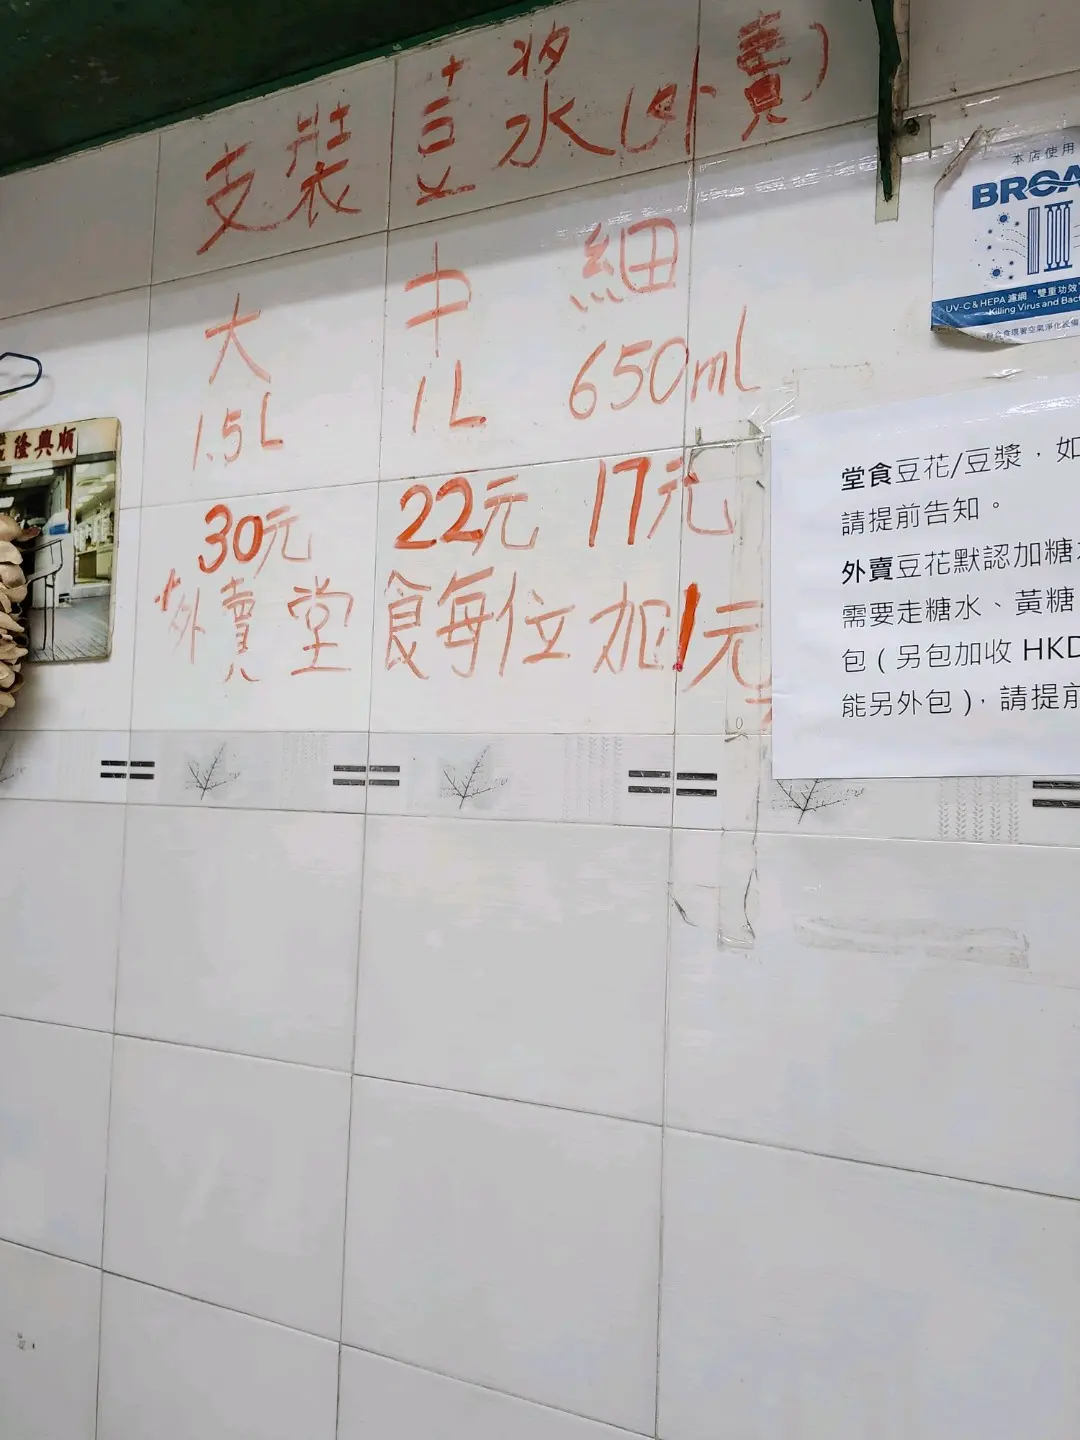 支裝豆浆(外賣)
大 中 細
1.5L 1L 650ml
30元 22元 17元
外賣堂食每位加1元
隆興順
本店使用
BROA
UV-C & HEPA 濾網 “雙重功效
Killing Virus and Bact
堂食豆花/豆漿，如
請提前告知。
外賣豆花默認加糖
需要走糖水、黃糖
包 ( 另包加收 HKD
能另外包 )，請提前